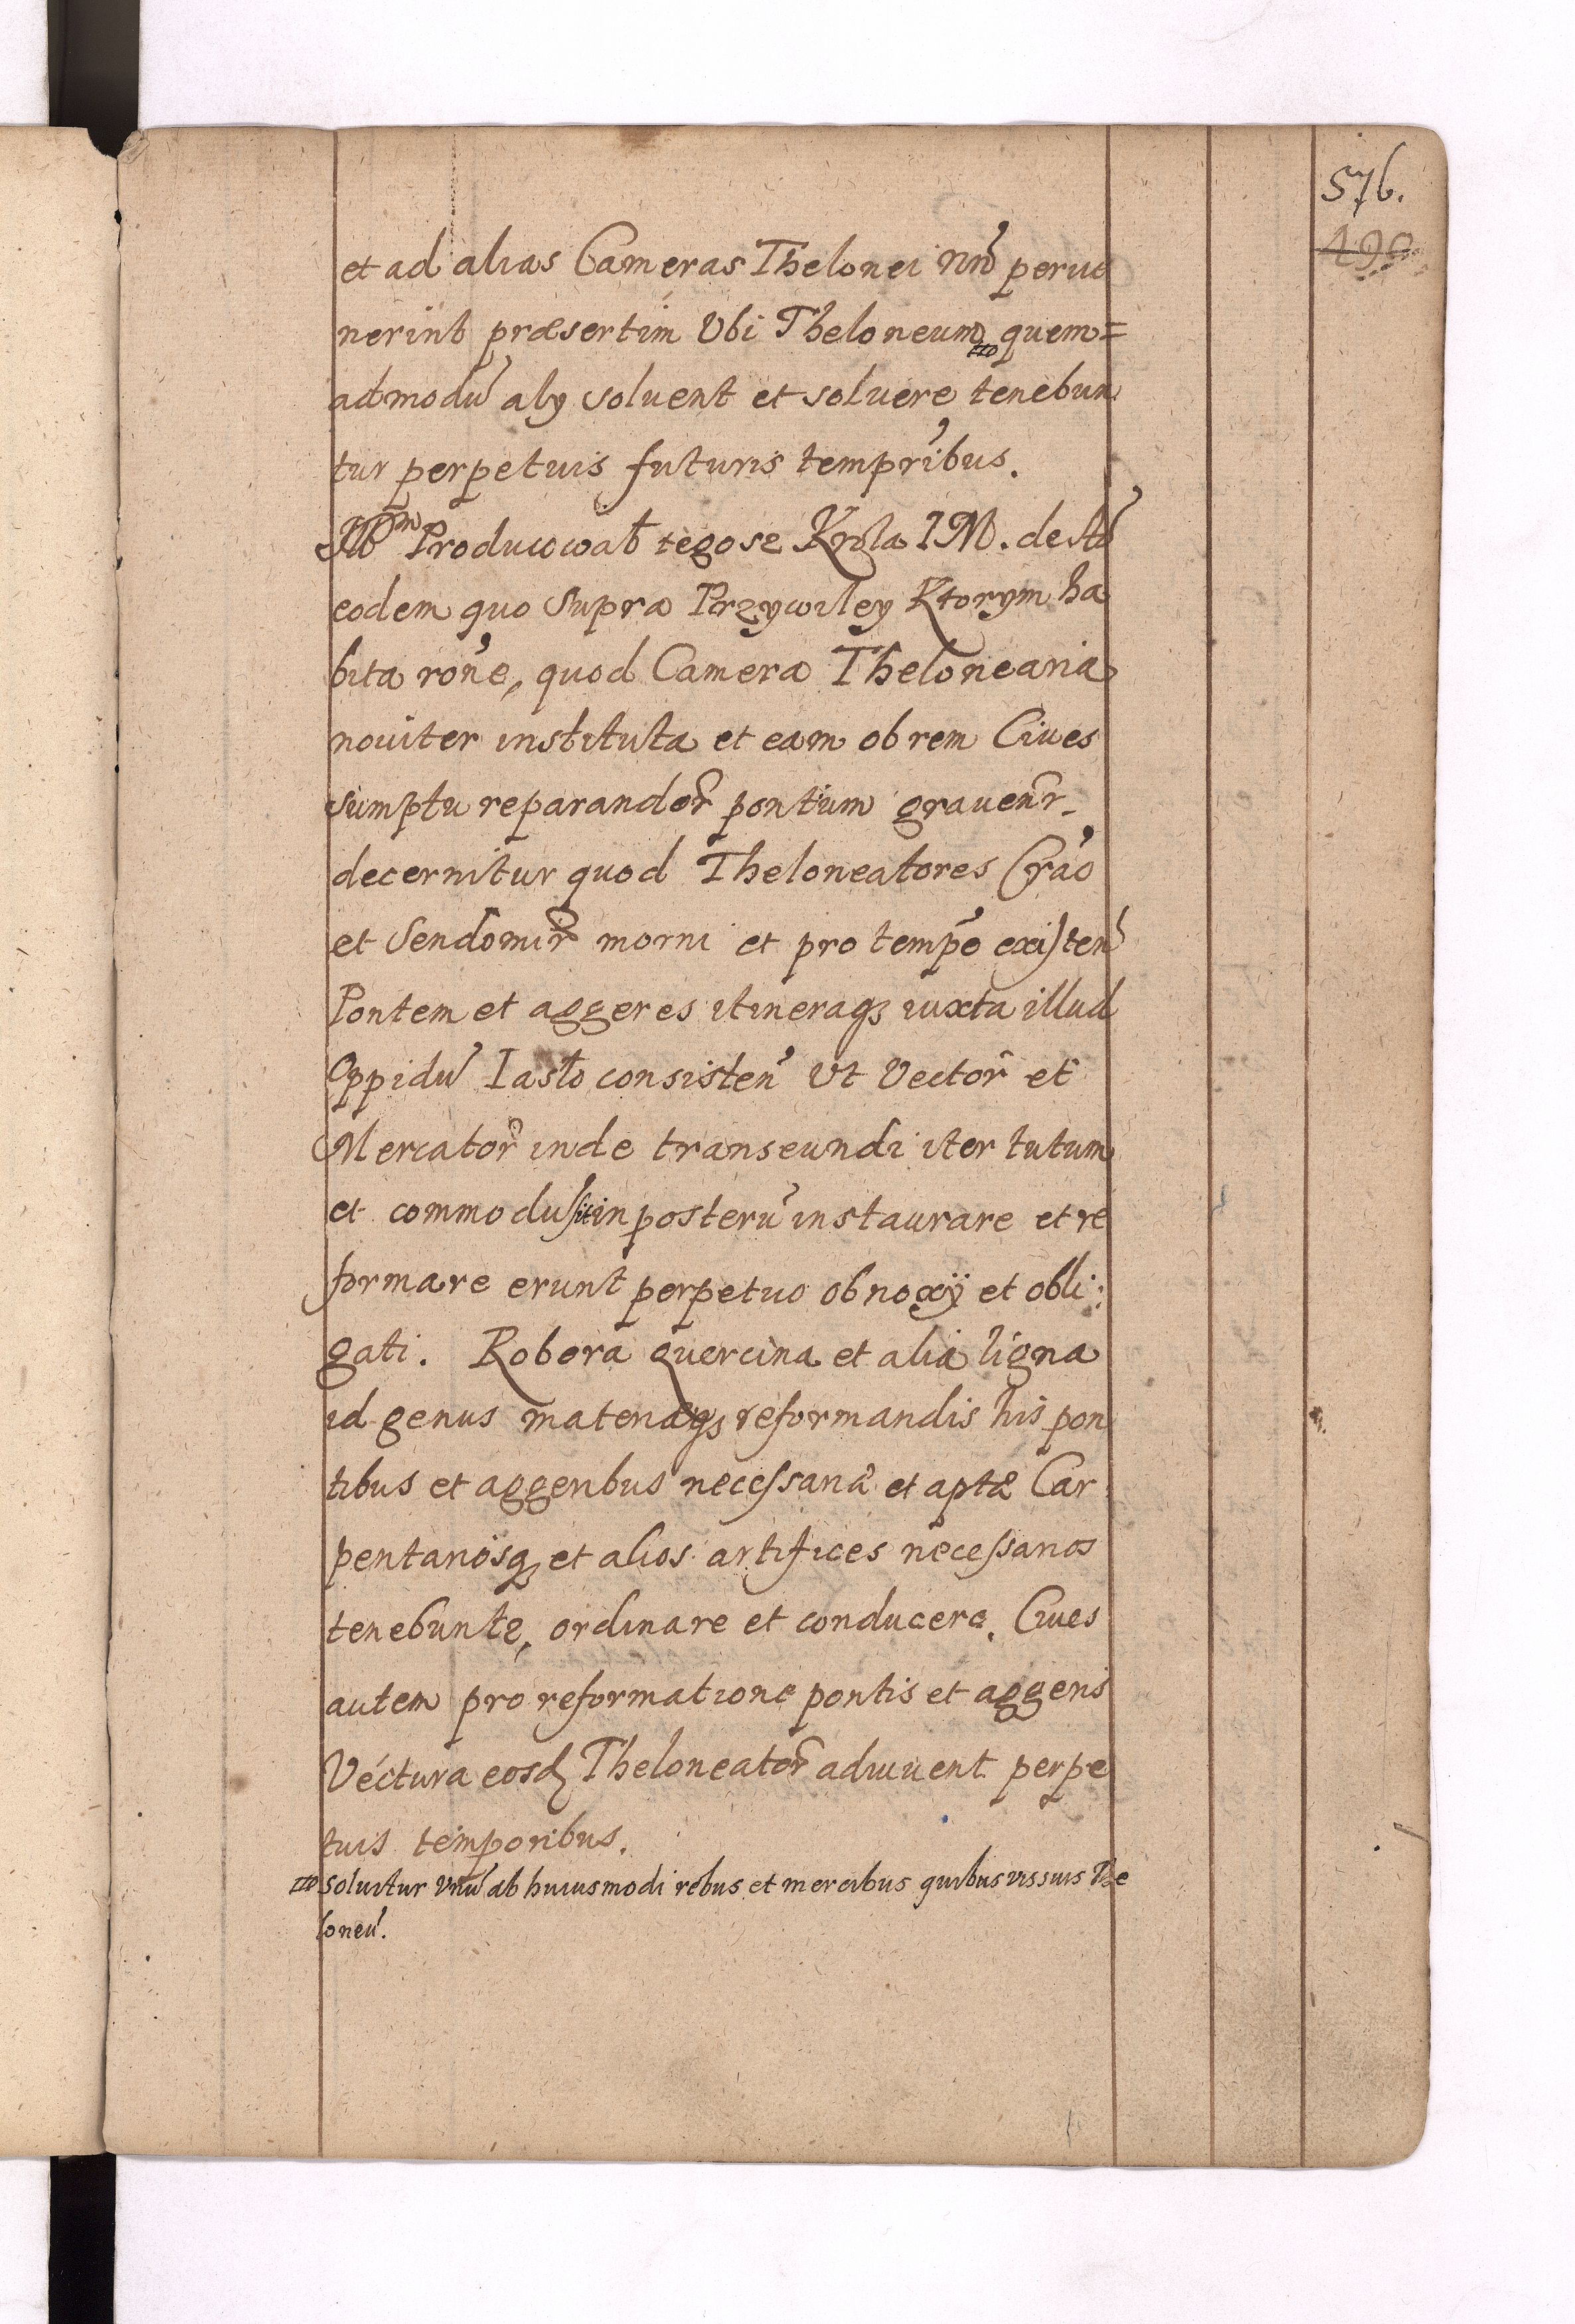 576.
190
et ad alias Cameras Thelonei nō perue
nerint præsertim Vbi Theloneum quem=
admodū alÿ soluent et soluere tenebun
tur perpetuis futuris tempribus.
Produkował tegosz Krola I M. de
eodem quo supra Przywiley Ktorym ha
bita rōne, quod Camera Thelonearia
nouiter instituta et eam ob rem Ciues
sumptu reparandor pontium grauenr.
decernitur quod Theloneatores Crac
et Sendomir morni et pro tempe existen
Pontem et aggeres itineraqz iuxta illud
Oppidū Iasło consisten Vt Vector et
Mercator inde transeundi iter tutum
et commodū sit in posterū instaurare et re
formare erunt perpetuo obnoxÿ et obli:
gati. Robora quercina et alia ligna
id genus materiaqz reformandis his pon
tibus et aggeribus necessaria et apta Car
pentariosqz et alios artifices necessarios
tenebuntr, ordinare et conducere. Ciues
autem pro reformatione pontis et aggeris
Vectura eosd Theloneator adiuuent perpe
tuis temporibus.
soluitur vnū ab huiusmodi rebus et mercibus quibusvis suis The
loneū.